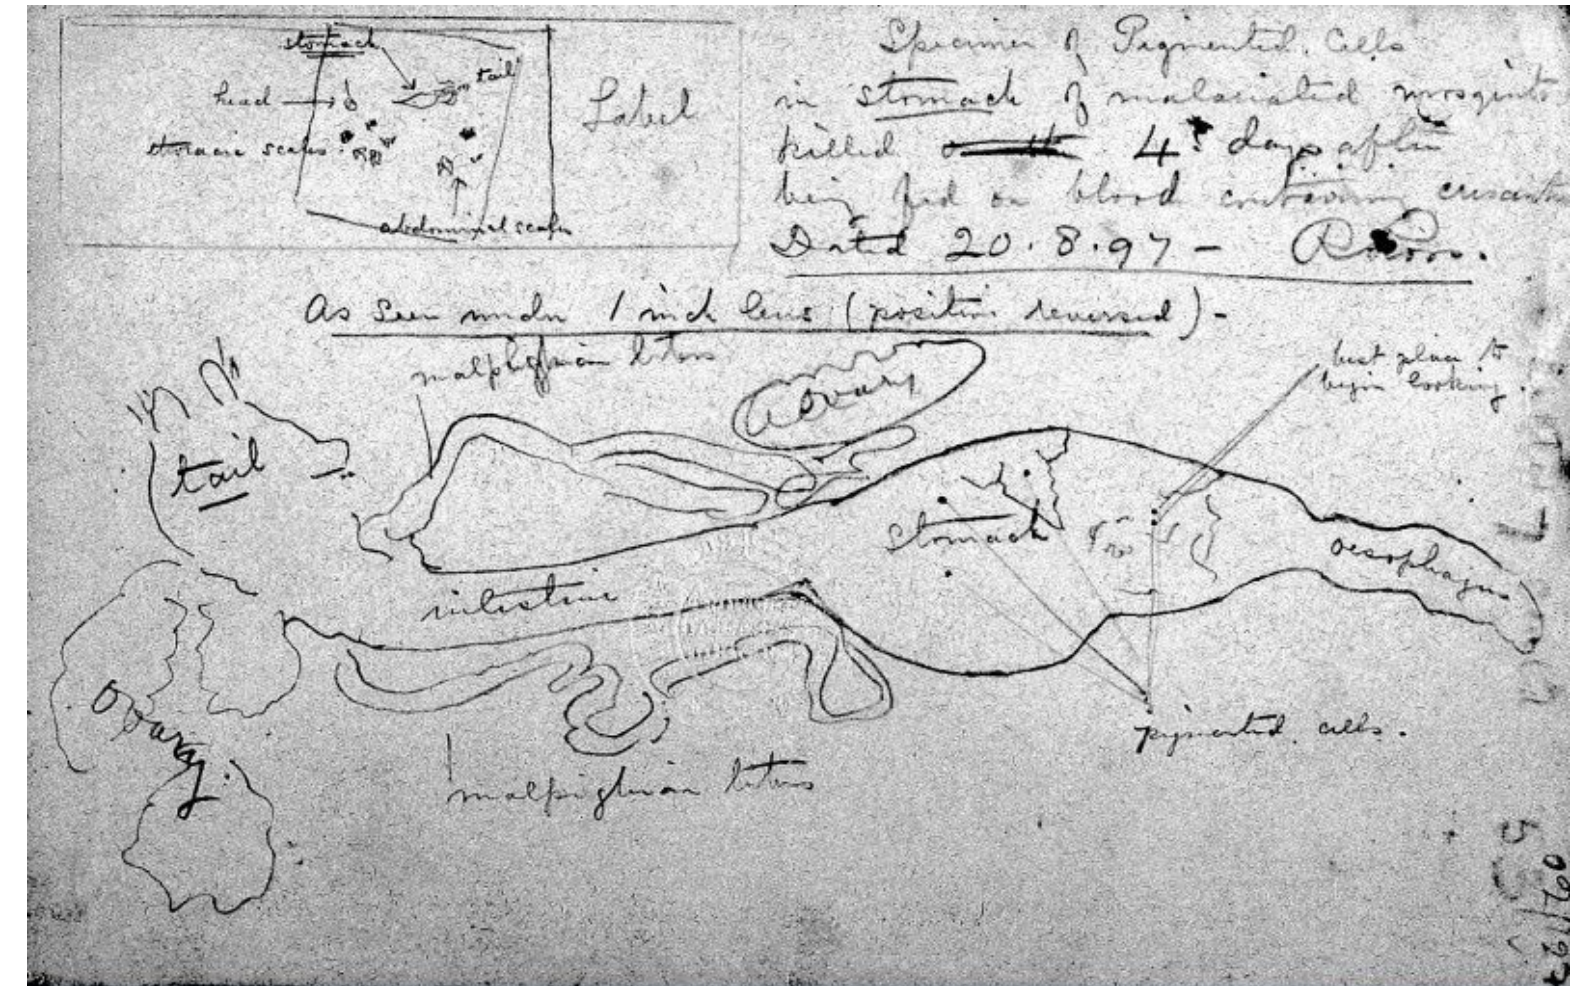 stomach
tail
head
thoracic scales
abdominal scales
Label
Specimen of Pigmented Cells
in stomach of malariated mosquito
killed 4 days after
being fed on blood containing crescents
Dated 20.8.97 - R. Ross.
As seen under 1 inch lens (position reversed) -
malpighian tubes
a ovary
best place to
begin looking.
tail
stomach
oesophagus
intestine
ovary
pigmented cells.
malpighian tubes